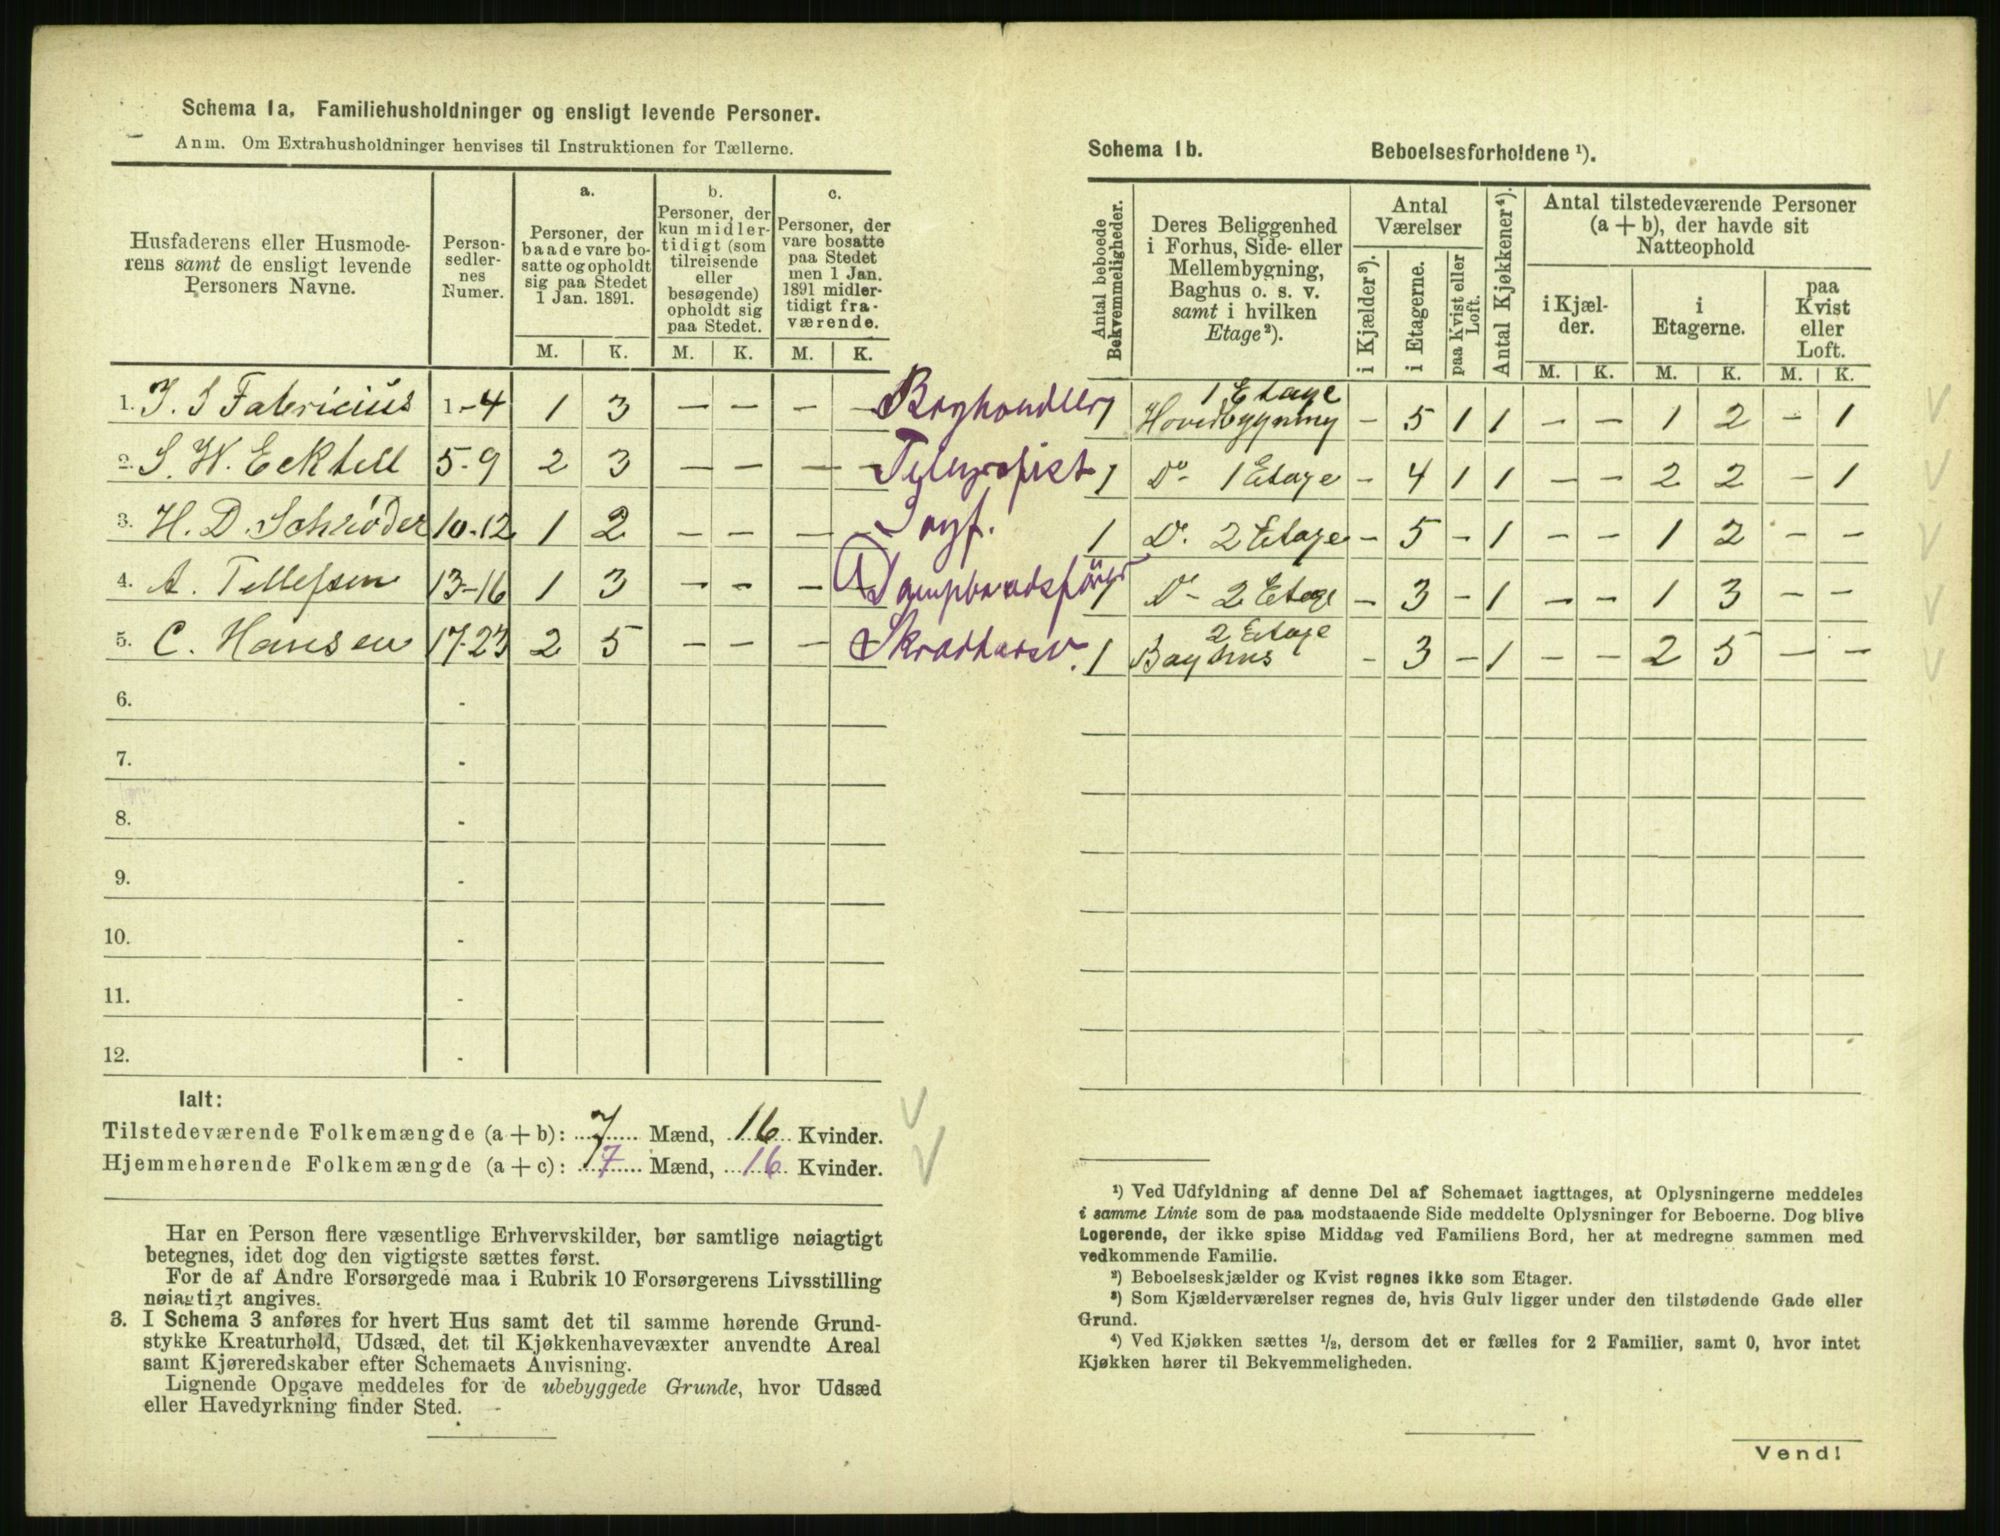 Schema 1a. Familiehusholdninger og ensligt levende Personer.
Anm. Om Extrahusholdninger henvises til Instruktionen for Tællerne.
Husfaderens eller Husmode-
rens samt de ensligt levende
Personers Navne.
Person-
sedler-
nes
Numer.
a.
Personer, der
baade vare bo-
satte og opholdt
sig paa Stedet
1 Jan. 1891.
b.
Personer, der
kun midler-
tidigt (som
tilreisende
eller
besøgende)
opholdt sig
paa Stedet.
c.
Personer, der
vare bosatte
paa Stedet
men 1 Jan.
1891 midler-
tidigt fra-
værende.
M. K. M. K. M. K.
1. J. S Fabricius 1-4 1 3 — — — — Boghandler
2. S. W. Ecktell 5-9 2 3 — — — — Telegrafist
3. H. D. Schrøder 10-12 1 2 — — — —
4. A. Tellefsen 13-16 1 3 — — — Dampbaadsfører
5. C. Hansen 17-23 2 5 — — —
6. -
7. -
8. -
9. -
10. -
11. -
12. -
Ialt:
Tilstedeværende Folkemængde (a + b): 7 Mænd, 16 Kvinder.
Hjemmehørende Folkemængde (a + c): 7 Mænd, 16 Kvinder.
Har en Person flere væsentlige Erhvervskilder, bør samtlige nøiagtigt
betegnes, idet dog den vigtigste sættes først.
For de af Andre Forsørgede maa i Rubrik 10 Forsørgerens Livsstilling
nøiagtigt angives.
3. I Schema 3 anføres for hvert Hus samt det til samme hørende Grund-
stykke Kreaturhold, Udsæd, det til Kjøkkenhavevæxter anvendte Areal
samt Kjøreredskaber efter Schemaets Anvisning.
Lignende Opgave meddeles for de ubebyggede Grunde, hvor Udsæd
eller Havedyrkning finder Sted.
Schema 1b. Beboelsesforholdene ¹).
Antal beboede
Bekvemmeligheder.
Deres Beliggenhed
i Forhus, Side- eller
Mellembygning,
Baghus o. s. v.
samt i hvilken
Etage²).
Antal
Værelser
i Kjælder³).
i Etagerne.
paa Kvist eller
Loft.
Antal Kjøkkener⁴).
Antal tilstedeværende Personer
(a + b), der havde sit
Natteophold
i Kjæl-
der.
i
Etagerne.
paa
Kvist
eller
Loft.
M. K. M. K. M. K.
1 Etage
1 Hovedbygning — 5 1 1 — — 1 2 — 1
1 Do 1 Etage — 4 1 1 — — 2 2 — 1
1 Do 2 Etage — 5 — 1 — — 1 2 — —
1 Do 2 Etage — 3 — 1 — — 1 3 — —
2 Etage
1 Baghus — 3 — 1 — — 2 5 — —
¹) Ved Udfyldning af denne Del af Schemaet iagttages, at Oplysningerne meddeles
i samme Linie som de paa modstaaende Side meddelte Oplysninger for Beboerne. Dog blive
Logerende, der ikke spise Middag ved Familiens Bord, her at medregne sammen med
vedkommende Familie.
²) Beboelseskjælder og Kvist regnes ikke som Etager.
³) Som Kjælderværelser regnes de, hvis Gulv ligger under den tilstødende Gade eller
Grund.
⁴) Ved Kjøkken sættes ¹/₂, dersom det er fælles for 2 Familier, samt 0, hvor intet
Kjøkken hører til Bekvemmeligheden.
Vend!